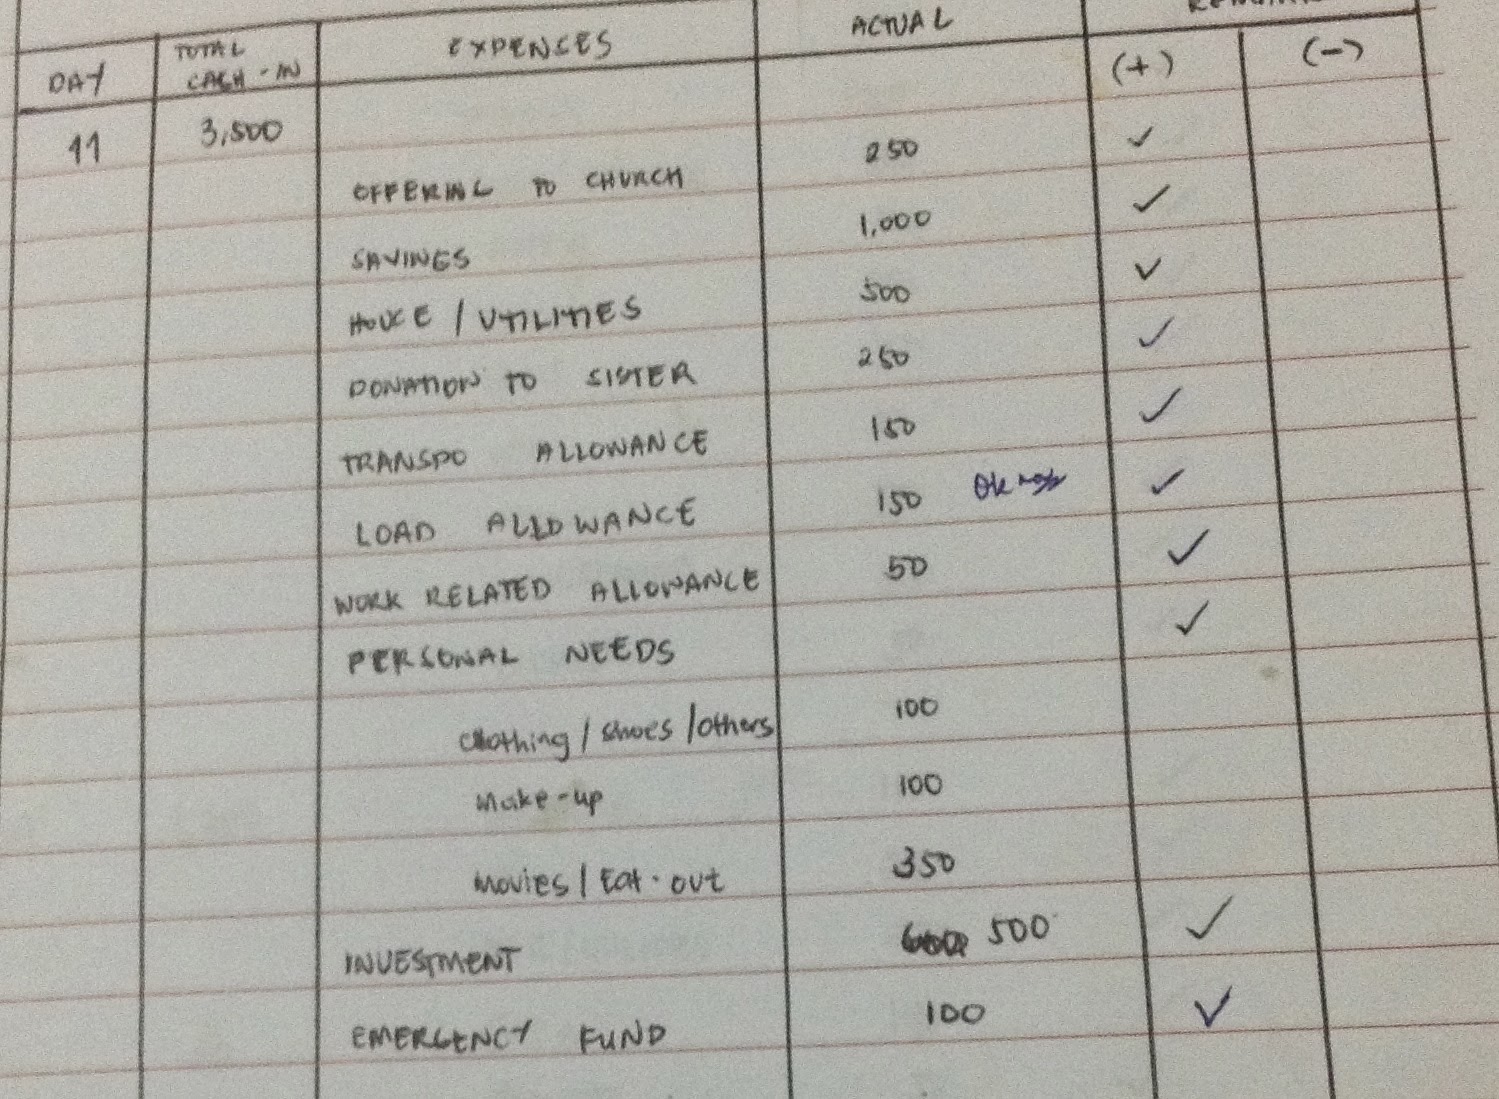 DAY TOTAL CASH-IN EXPENSES ACTUAL (+) (-)
11 3,500
OFFERING TO CHURCH 250 ✓
SAVINGS 1,000 ✓
HOUSE / UTILITIES 500 ✓
DONATION TO SISTER 250 ✓
TRANSPO ALLOWANCE 150 ✓
LOAD ALLOWANCE 150 ✓
WORK RELATED ALLOWANCE 50 ✓
PERSONAL NEEDS ✓
Clothing / shoes / others 100
Make-up 100
Movies / Eat-out 350
INVESTMENT 500 ✓
EMERGENCY FUND 100 ✓